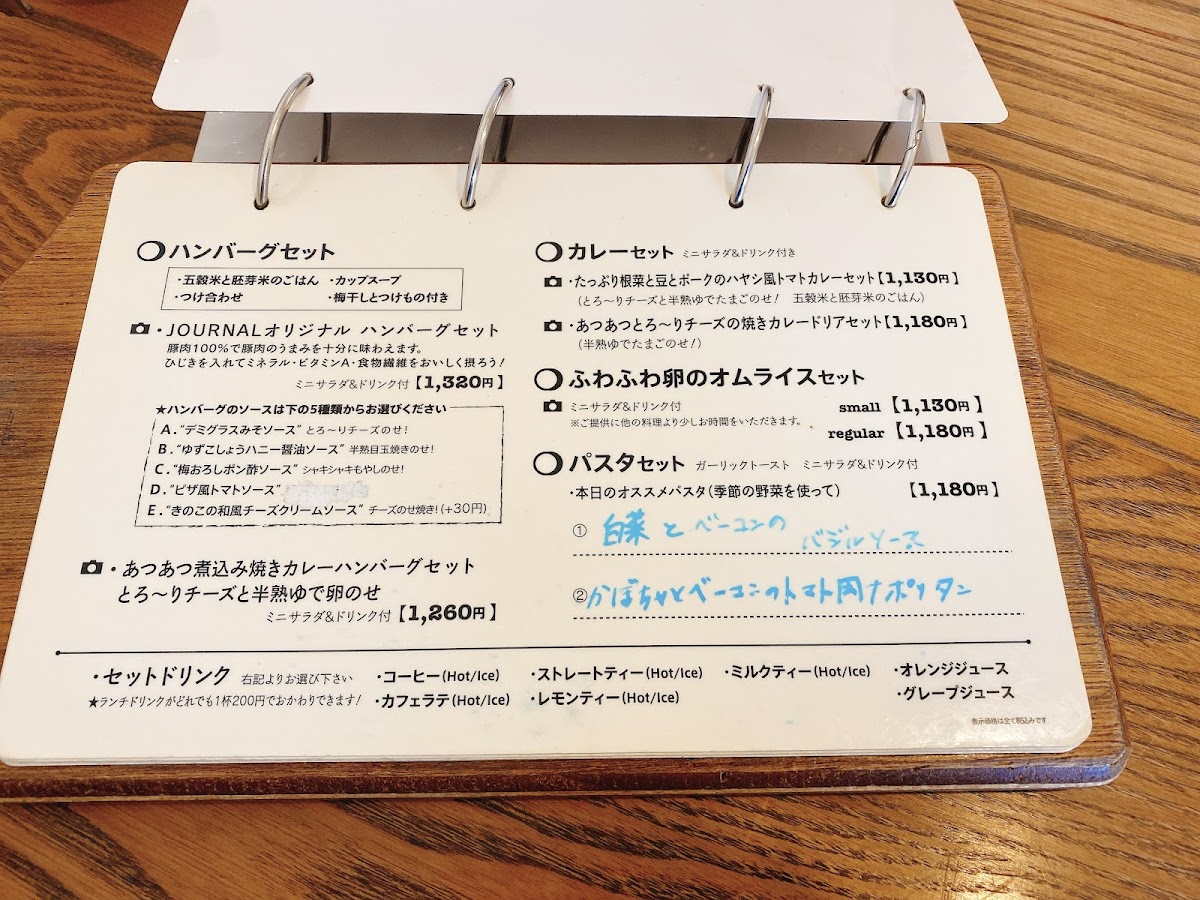 ハンバーグセット
・五穀米と胚芽米のごはん ・カップスープ
・つけ合わせ ・梅干しとつけもの付き
・JOURNALオリジナル ハンバーグセット
豚肉100%で豚肉のうまみを十分に味わえます。
ひじきを入れてミネラル・ビタミンA・食物繊維をおいしく摂ろう!
ミニサラダ&ドリンク付【1,320円】
★ハンバーグのソースは下の5種類からお選びください
A."デミグラスみそソース" とろ〜りチーズのせ!
B."ゆずこしょうハニー醤油ソース" 半熟目玉焼きのせ!
C."梅おろしポン酢ソース" シャキシャキもやしのせ!
D."ピザ風トマトソース"
E."きのこの和風チーズクリームソース" チーズのせ焼き!(+30円)
・あつあつ煮込み焼きカレーハンバーグセット
とろ〜りチーズと半熟ゆで卵のせ
ミニサラダ&ドリンク付【1,260円】
カレーセット ミニサラダ&ドリンク付き
・たっぷり根菜と豆とポークのハヤシ風トマトカレーセット【1,130円】
(とろ〜りチーズと半熟ゆでたまごのせ! 五穀米と胚芽米のごはん)
・あつあつとろ〜りチーズの焼きカレードリアセット【1,180円】
(半熟ゆでたまごのせ!)
ふわふわ卵のオムライスセット
ミニサラダ&ドリンク付 small【1,130円】
※ご提供に他の料理より少しお時間をいただきます。 regular【1,180円】
パスタセット ガーリックトースト ミニサラダ&ドリンク付
・本日のオススメパスタ(季節の野菜を使って) 【1,180円】
① 白菜とベーコンの バジルソース
② かぼちゃとベーコンのトマト風ナポリタン
・セットドリンク 右記よりお選び下さい ・コーヒー(Hot/Ice) ・ストレートティー(Hot/Ice) ・ミルクティー(Hot/Ice) ・オレンジジュース
★ランチドリンクがどれでも1杯200円でおかわりできます! ・カフェラテ(Hot/Ice) ・レモンティー(Hot/Ice) ・グレープジュース
表示価格は全て税込みです